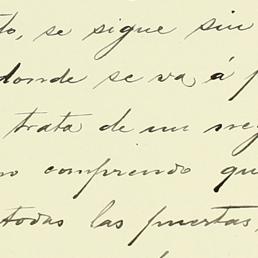 to, se sigue sin
donde se va, á p
trata de un neg
no comprendo qu
todas las puertas,